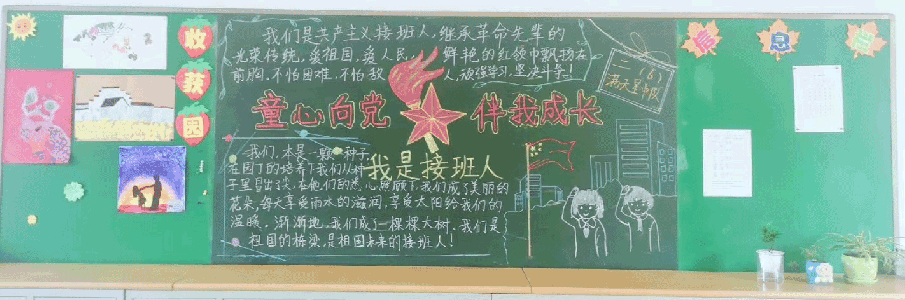 收获园
我们是共产主义接班人,继承革命先辈的
光荣传统,爱祖国,爱人民,鲜艳的红领巾飘扬在
前胸,不怕困难,不怕敌人,顽强学习,坚决斗争!
童心向党 伴我成长
我是接班人
我们,本是一颗种子
在园丁的培养下我们从种
子里冒出了芽,在他们的悉心照顾下,我们成了美丽的
花朵,每天享受雨水的滋润,享受太阳给我们的
温暖,渐渐地,我们成了一棵棵大树,我们是
祖国的栋梁,是祖国未来的接班人!
二(6)
中队
信息台